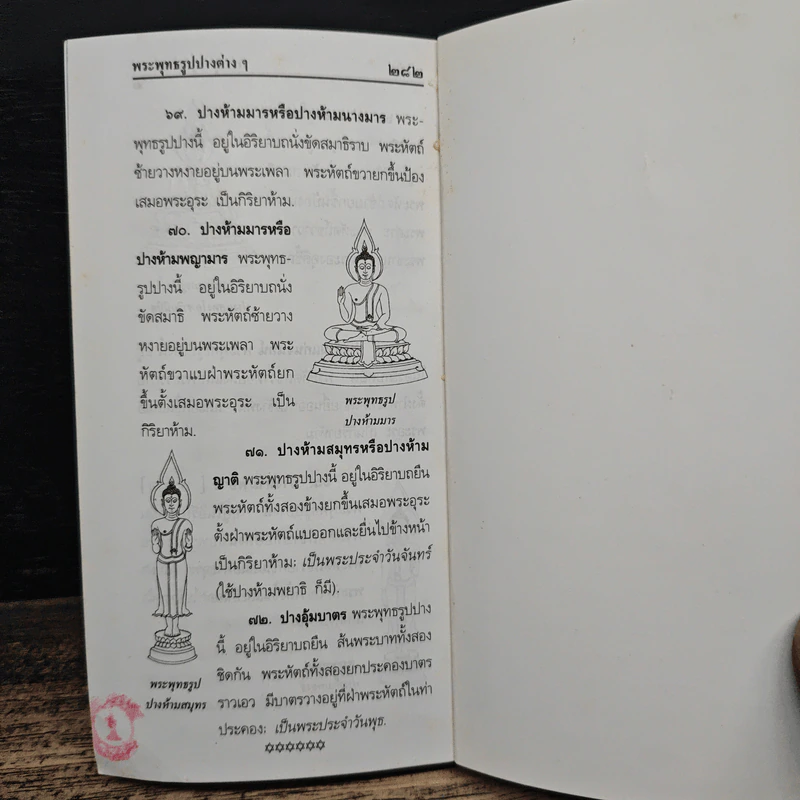 พระพุทธรูปปางต่าง ๆ
๒๘๒
๖๙. ปางห้ามมารหรือปางห้ามนางมาร พระ-
พุทธรูปปางนี้ อยู่ในอิริยาบถนั่งขัดสมาธิราบ พระหัตถ์
ซ้ายวางหงายอยู่บนพระเพลา พระหัตถ์ขวายกขึ้นป้อง
เสมอพระอุระ เป็นกิริยาห้าม.
๗๐. ปางห้ามมารหรือ
ปางห้ามพญามาร พระพุทธ-
รูปปางนี้ อยู่ในอิริยาบถนั่ง
ขัดสมาธิ พระหัตถ์ซ้ายวาง
หงายอยู่บนพระเพลา พระ
หัตถ์ขวาแบฝ่าพระหัตถ์ยก
ขึ้นตั้งเสมอพระอุระ เป็น
กิริยาห้าม.
พระพุทธรูป
ปางห้ามมาร
๗๑. ปางห้ามสมุทรหรือปางห้าม
ญาติ พระพุทธรูปปางนี้ อยู่ในอิริยาบถยืน
พระหัตถ์ทั้งสองข้างยกขึ้นเสมอพระอุระ
ตั้งฝ่าพระหัตถ์แบออกและยื่นไปข้างหน้า
เป็นกิริยาห้าม; เป็นพระประจำวันจันทร์
(ใช้ปางห้ามพยาธิ ก็มี).
๗๒. ปางอุ้มบาตร พระพุทธรูปปาง
นี้ อยู่ในอิริยาบถยืน ส้นพระบาททั้งสอง
ชิดกัน พระหัตถ์ทั้งสองยกประคองบาตร
ราวเอว มีบาตรวางอยู่ที่ฝ่าพระหัตถ์ในท่า
ประคอง; เป็นพระประจำวันพุธ.
พระพุทธรูป
ปางห้ามสมุทร